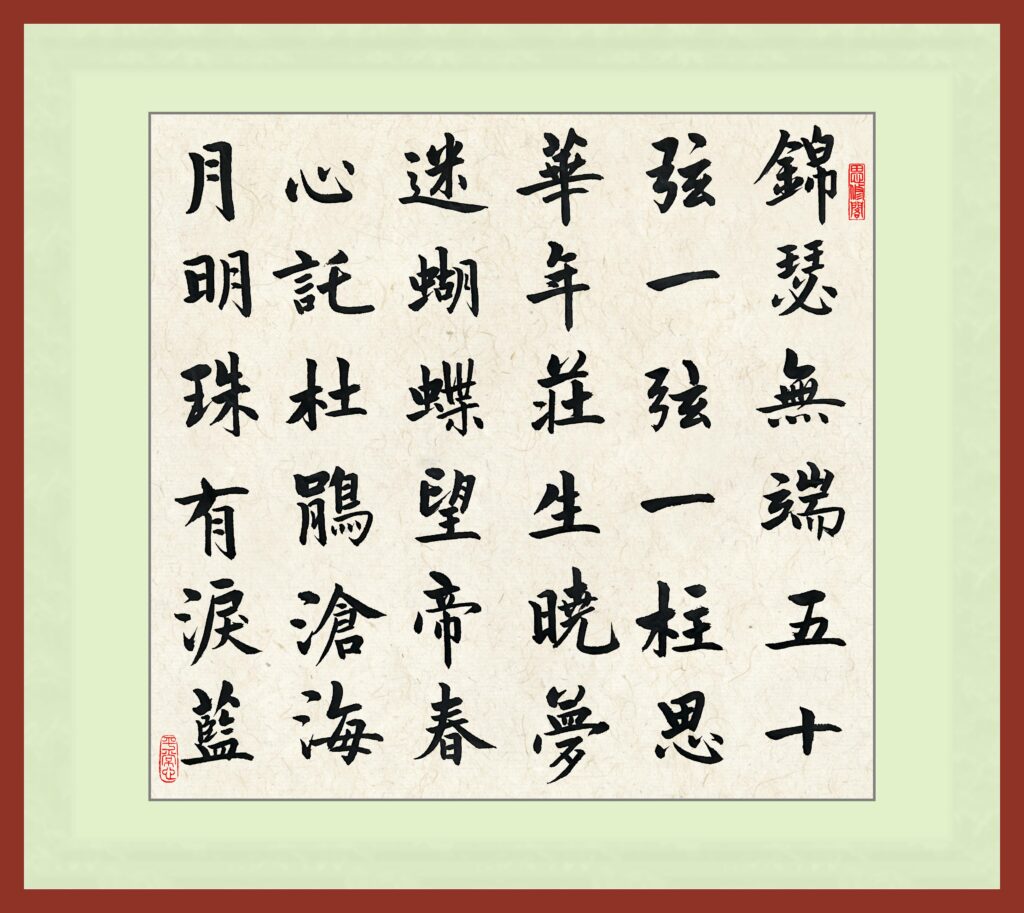 錦瑟無端五十
弦一弦一柱思
華年莊生曉夢
迷蝴蝶望帝春
心託杜鵑滄海
月明珠有淚藍
平常心